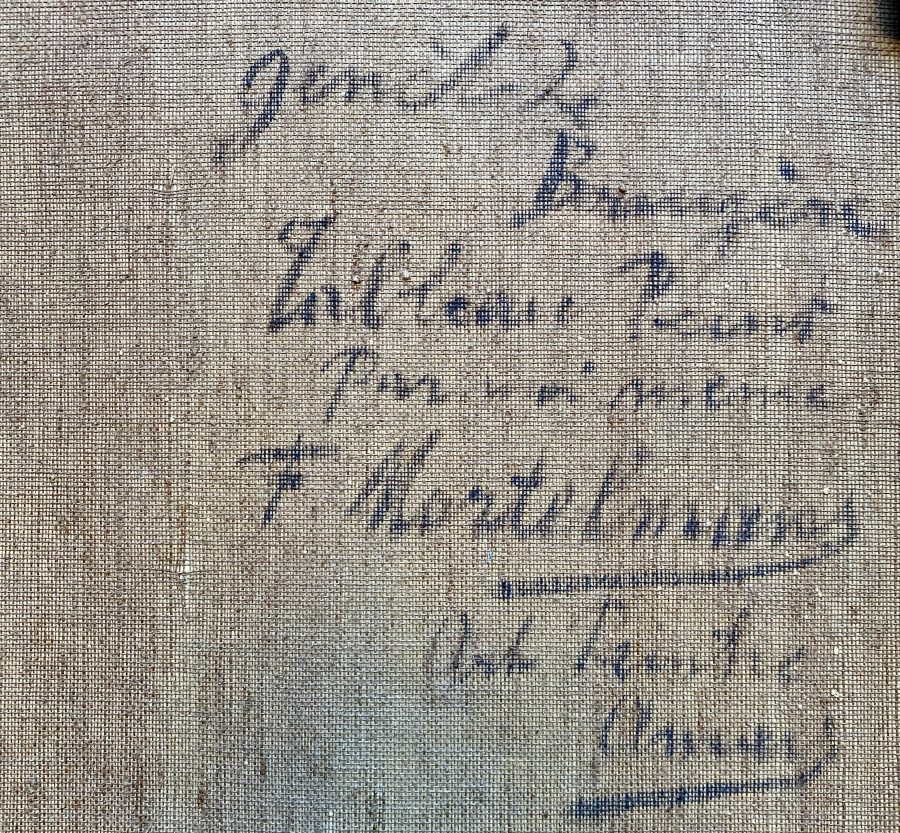 Genêt &
Bruyère
Tableau Peint
Par moi même
F. Mortelmans
Art Peintre
Anvers